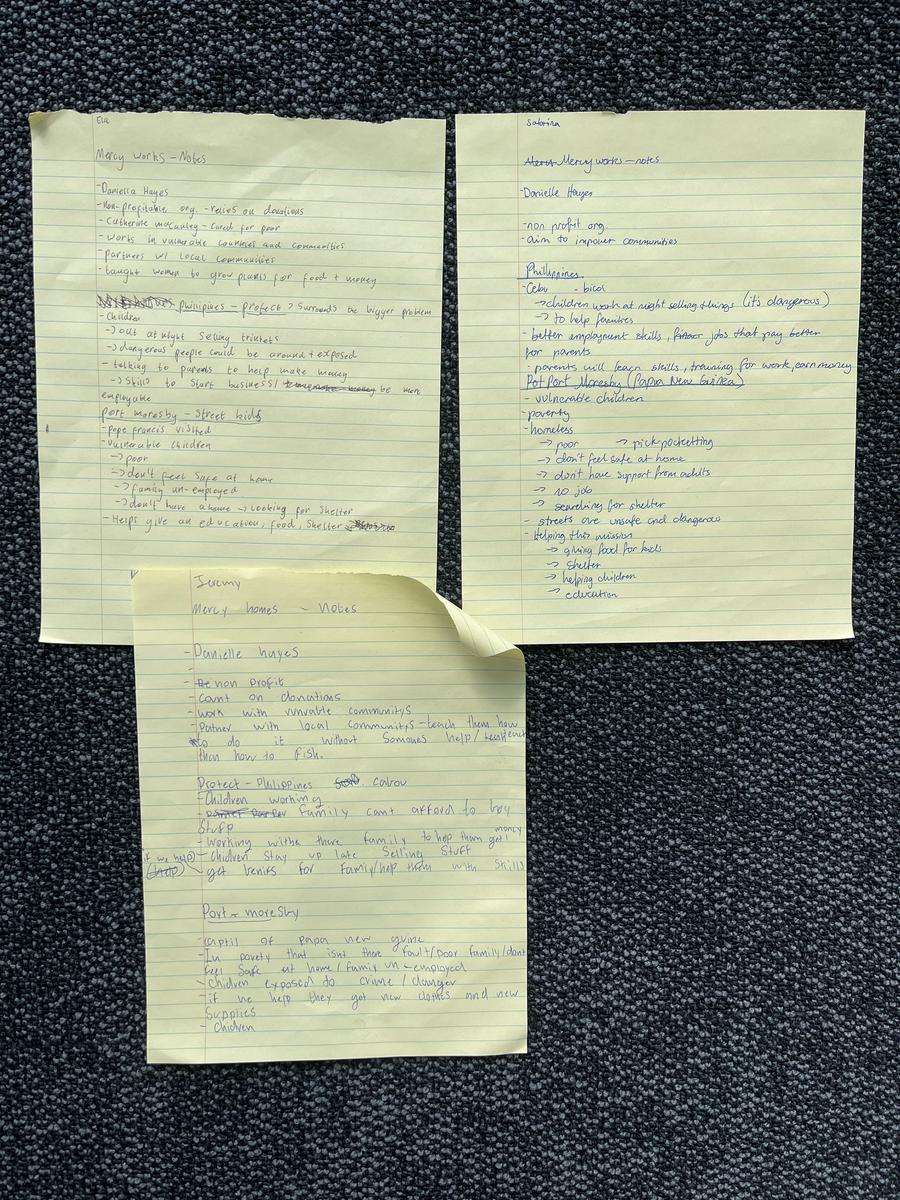 Eve
Mercy works - Notes
-Daniella Hayes
-Non-profitable org. -relies on donations
-Catherine mcCauley - cared for poor
-works in vulnerable countries and communities
-partners w/ local communities
-taught women to grow plants for food + money
philipines - project > Surrounds the bigger problem
-Children
-> out at night selling trinkets
-> dangerous people could be around + exposed
- talking to parents to help make money
-> Skills to start business/ be more
employable
port moresby - Street kids
-Pope Francis visited
-vulnerable children
-> poor
-> don't feel safe at home
-> family un-employed
-> don't have a home -> looking for shelter
-Helps give an education, food, shelter
Sabrina
Mercy works - notes
-Danielle Hayes
-non profit org.
-aim to impover communities
Philippines.
-Cebu -bicol
-> children work at night selling things (it's dangerous)
-> to help families
- better employment skills, jobs that pay better
for parents
- parents will learn skills, training for work, earn money
Pot Port Moresby (Papa New Guinea)
- vulnerable children
-poverty
-homeless
-> poor -> pick pocketting
-> don't feel safe at home
-> don't have support from adults
-> no job
-> searching for shelter
- streets are unsafe and dangerous
- Helping this mission
-> giving food for kids
-> shelter
-> helping children
-> education
Jeremy
Mercy homes - Notes
-Danielle hayes
-
- non profit
-count on donations
-work with vunrable communitys
-Partner with local communitys - teach them how
to do it without somones help/ teach
then how to fish.
Protect - Philippines
-Children working
- family cant afford to buy
Stuff
-working withe there family to help them get money
- Chidren stay up late selling Stuff
if we help
(help) get benifs for family/help them with Skills
Port - moresby
-captil of Papa new guine
-In povety that isnt there fault/Poor family/dont
feel safe at home/family un-employed
-Chidren exposed to crime / danger
-if we help they get new clothes and new
Supplies
- Chidren